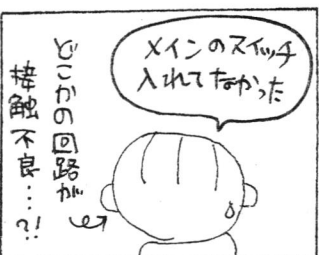 メインのスイッチ
入れてなかった
どこかの回路が
接触不良…?!